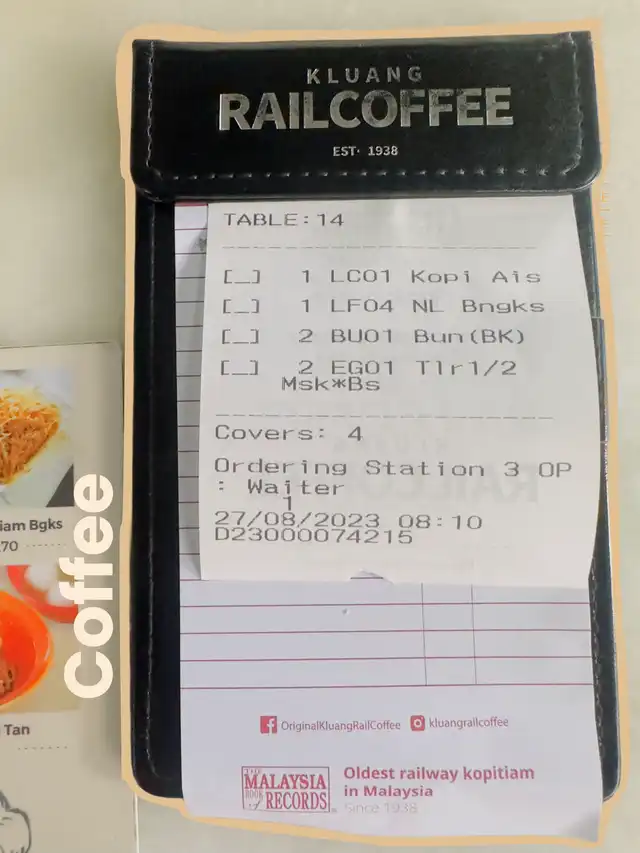 KLUANG
RAILCOFFEE
EST· 1938
TABLE:14
[_] 1 LC01 Kopi Ais
[_] 1 LF04 NL Bngks
[_] 2 BU01 Bun(BK)
[_] 2 EG01 Tlr1/2
Msk*Bs
Covers: 4
Ordering Station 3 OP
: Waiter
1
27/08/2023 08:10
D23000074215
OriginalKluangRailCoffee kluangrailcoffee
THE
MALAYSIA
BOOK of RECORDS
Oldest railway kopitiam
in Malaysia
Since 1938
iam Bgks
70
Tan
Coffee